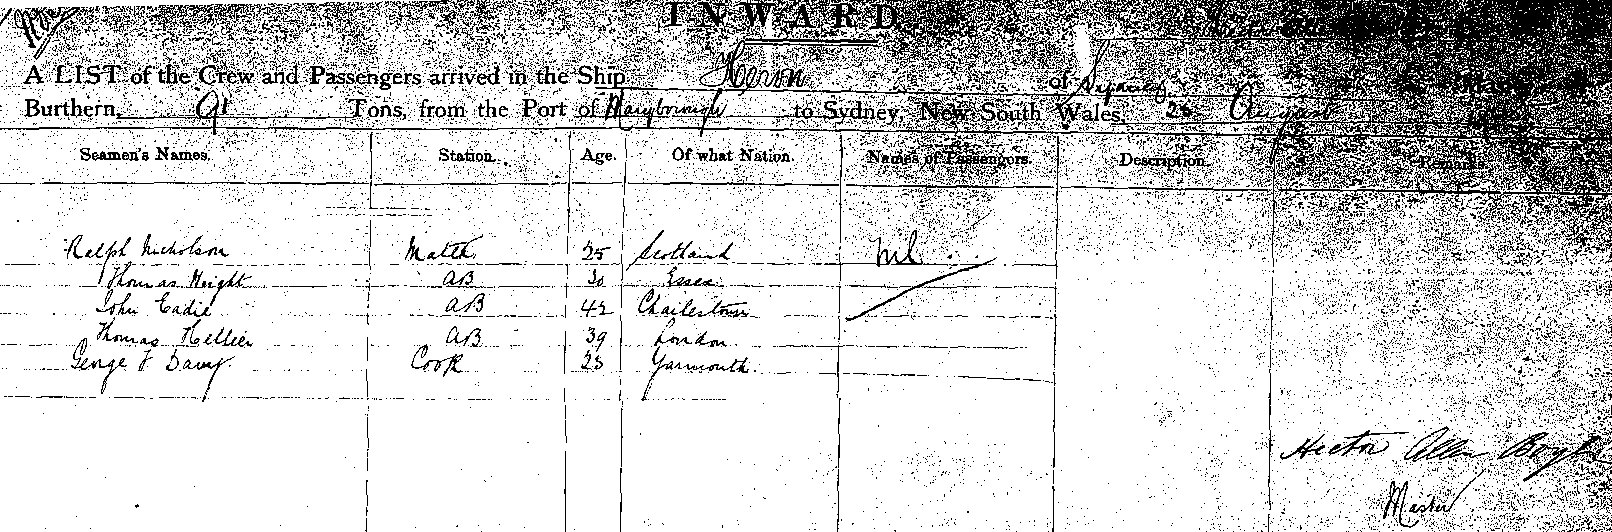 INWARD
A LIST of the Crew and Passengers arrived in the Ship Heron of Sydney
Burthern, 91 Tons, from the Port of Maryborough to Sydney, New South Wales, 26 August
Seamen's Names. Station. Age. Of what Nation. Names of Passengers. Description. Remarks
Ralph Nicholson Mate 25 Scotland nil
Thomas Height AB 30 Essex
John Eadie AB 42 Charlestown
Thomas Hellier AB 39 London
George F Davy Cook 23 Yarmouth
Hector Allen
Master